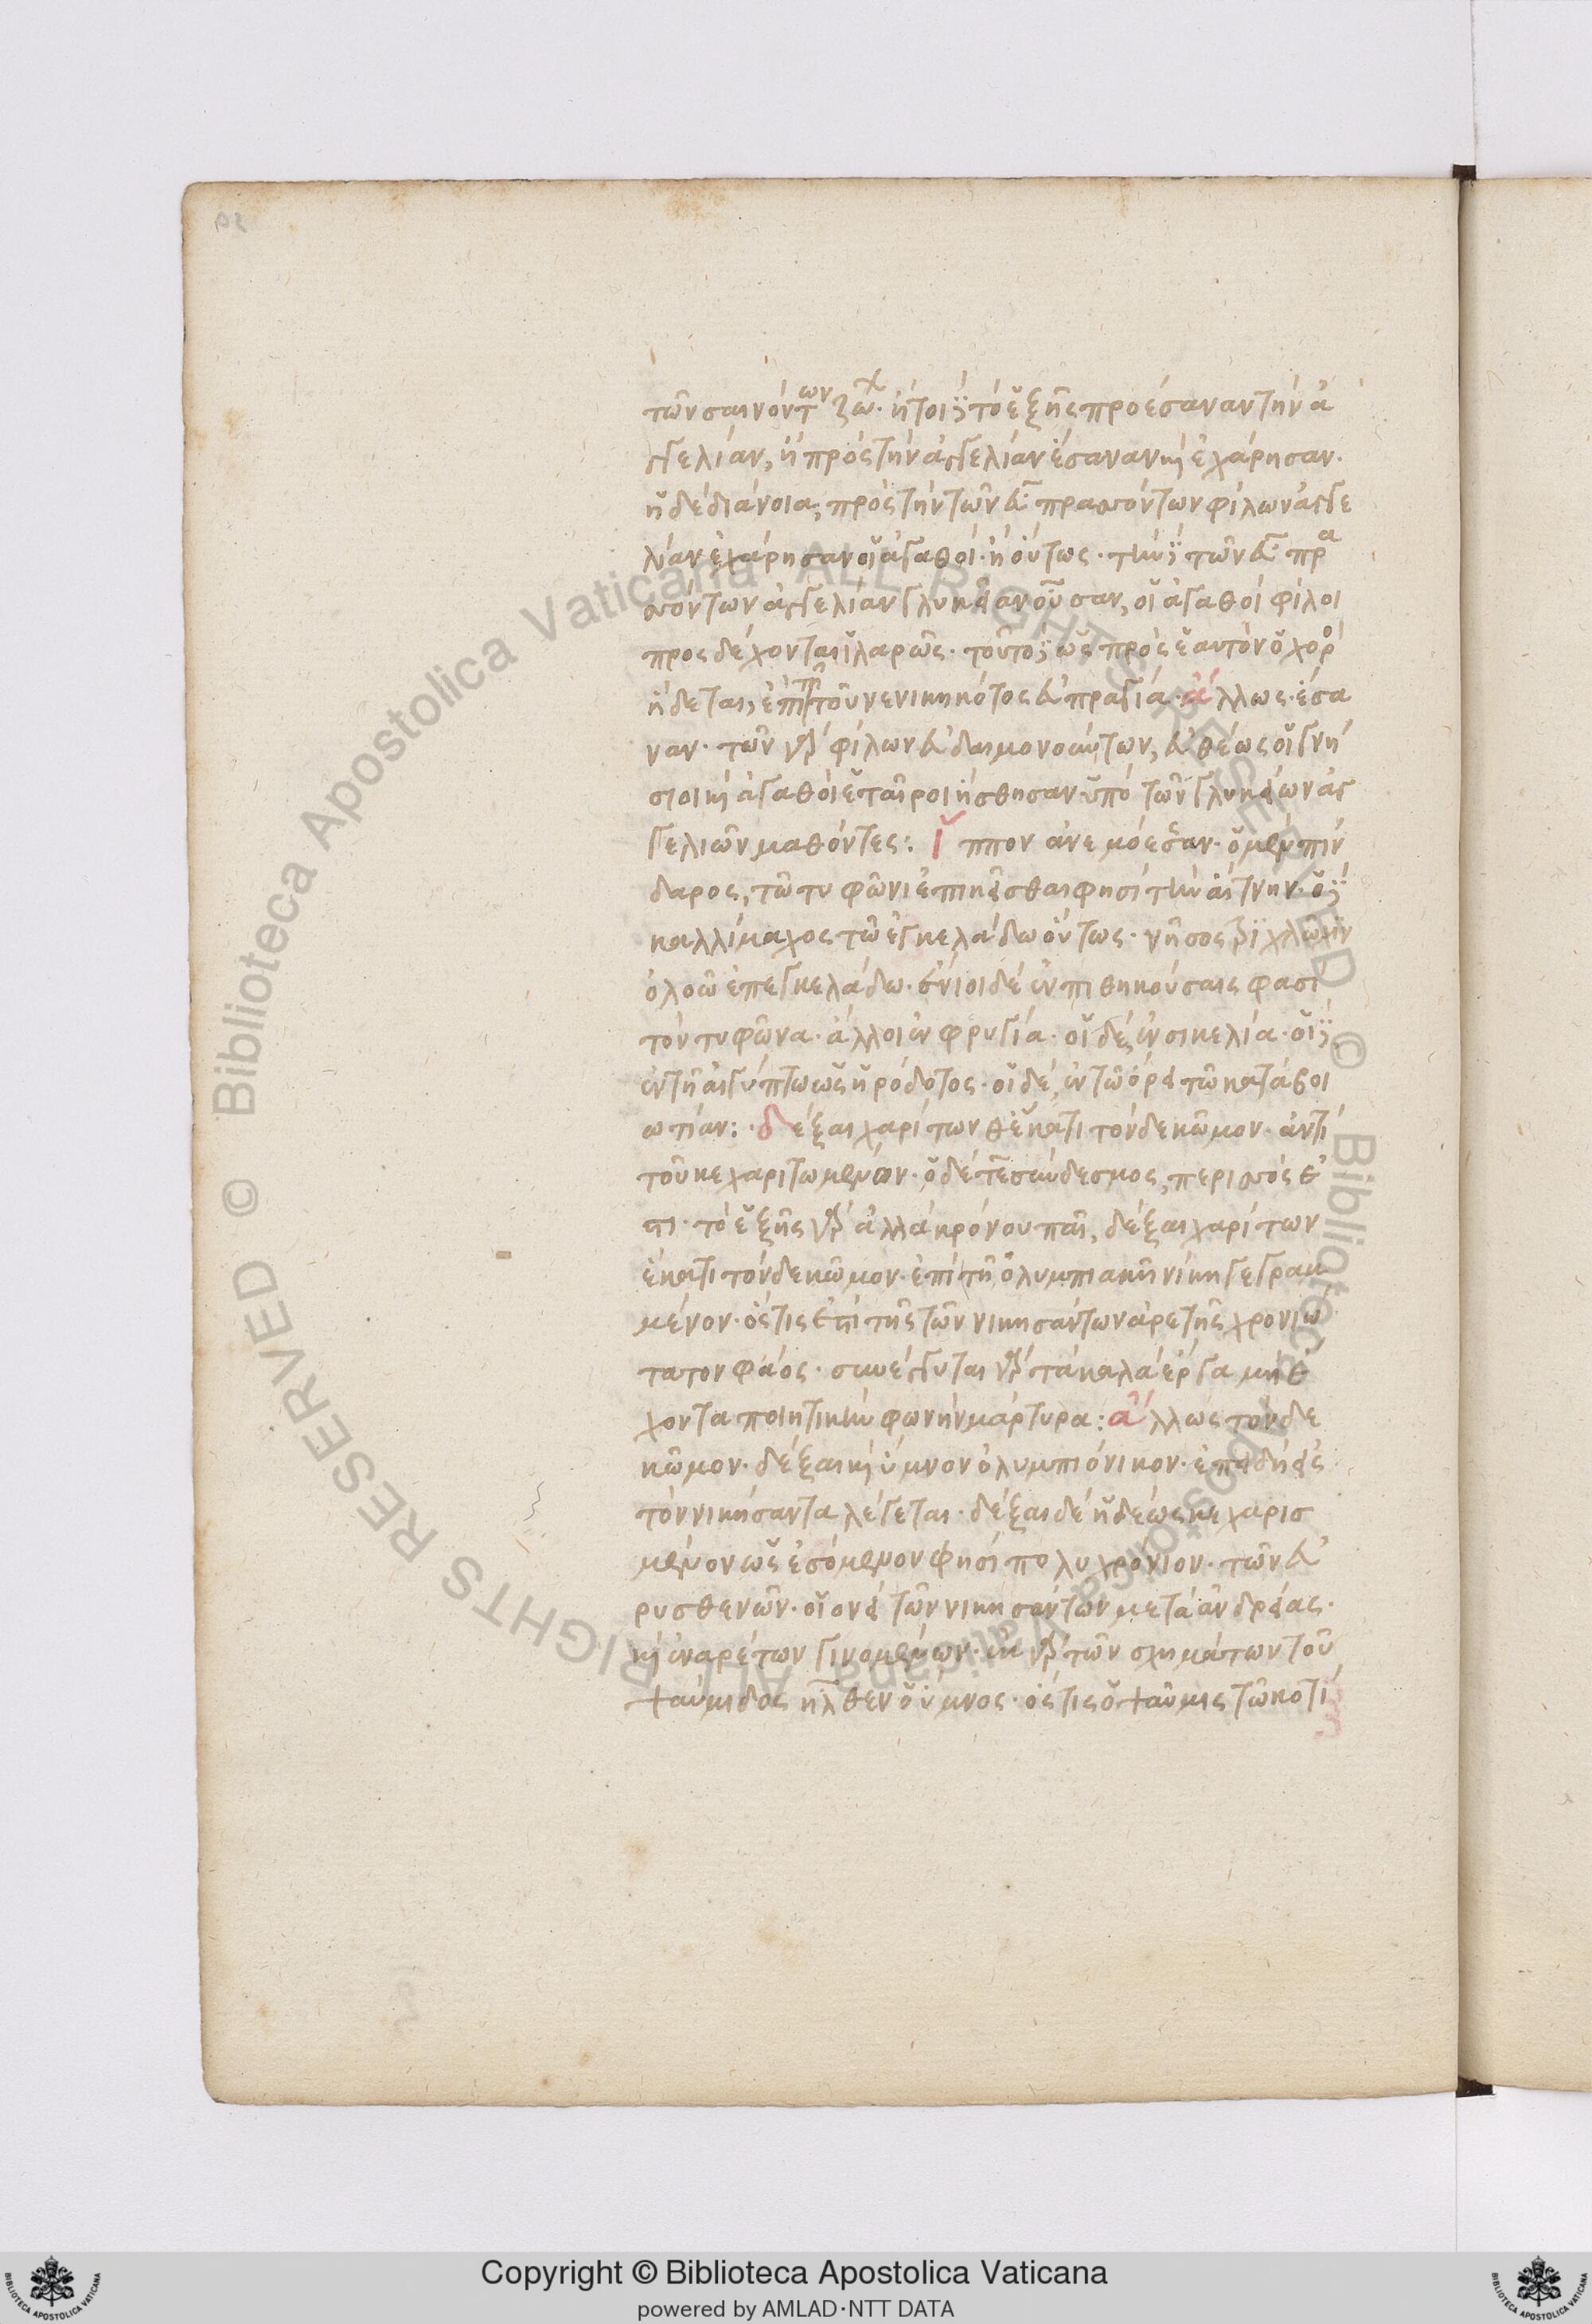 τῶν σαινόντων ζώων. ἤτοι δὲ τὸ ἑξῆς προέσαναν τὴν ἀ
γγελίαν, ἢ πρὸς τὴν ἀγγελίαν ἔσαναν καὶ ἐχάρησαν.
ἡ δὲ διάνοια, πρὸς τὴν τῶν εὖ πραττόντων φίλων ἀγγε
λίαν ἐχάρησαν οἱ ἀγαθοί. ἢ οὕτως. τὴν δὲ τῶν εὖ πρα
ττόντων ἀγγελίαν γλυκεῖαν οὖσαν, οἱ ἀγαθοὶ φίλοι
προσδέχονται ἱλαρῶς. τοῦτο δὲ ὡς πρὸς ἑαυτὸν ὁ χορὸ
ἥδεται, ἐπὶ τῇ τοῦ νενικηκότος εὐπραγία. ἄλλως. ἔσα
ναν. τῶν γὰρ φίλων εὐδαιμονούντων, εὐθέως οἱ γνή
σιοι καὶ ἀγαθοὶ ἑταῖροι ἥσθησαν ὑπὸ τῶν γλυκειῶν ἀγ
γελιῶν μαθόντες: ἵππον ἀνεμόεσσαν. ὁ μὲν πίν
δαρος, τῶ τυφῶνι ἐπικεῖσθαι φησὶ τὴν αἴτνην. ὁ δὲ
καλλίμαχος τῶ ἐγκελάδω οὕτως. νῆσος
ὀλοῶ ἐπ ἐγκελάδω. ἔνιοι δὲ ἐν πιθηκούσαις φασὶ
τὸν τυφῶνα. ἄλλοι ἐν φρυγία. οἱ δὲ, ἐν σικελία. οἱ δὲ
ἐν τῆ αἰγύπτω ὡς ἡρόδοτος. οἱ δὲ, ἐν τῶ ὄρει τῶ κατὰ βοι
ωτίαν: δέξαι χαρίτων θ' ἕκατι τόνδε κῶμον. ἀντὶ
τοῦ κεχαριτωμένον. ὁ δὲ τε σύνδεσμος, περιττὸς ἐ
τι. τὸ ἑξῆς γὰρ ἀλλὰ κρόνου παῖ, δέξαι χαρίτων
ἕκατι τόνδε κῶμον. ἐπὶ τῆ ὀλυμπιακῆ νίκη γεγραμ
μένον. ὅστις ἐστὶ τῆς τῶν νικησάντων ἀρετῆς χρονιώ
τατον φάος. συνέσγυται γὰρ τὰ καλὰ ἔργα μὴ ἔ
χοντα ποιητικὴν φωνὴν μάρτυρα: ἄλλως τόνδε
κῶμον. δέξαι καὶ ὕμνον ὀλυμπιόνικον. ἐπειδὴ εἰς
τὸν νικήσαντα λέγεται. δέξαι δὲ ἡδέως κεχαρισ
μένον ὡς ἐσόμενον φησὶ πολυχρόνιον. τῶν εὐ
ρυσθενῶν. οἱονεὶ τῶν νικησάντων μετὰ ἀνδρείας.
καὶ ἐναρέτων γινομένων. ἐκ γὰρ τῶν σχημάτων τοῦ
ψαύμιδος ἦλθεν ὁ ὕμνος. ὅστις ὁ ψαῦμις τῶ κοτί
Copyright © Biblioteca Apostolica Vaticana
powered by AMLAD·NTT DATA